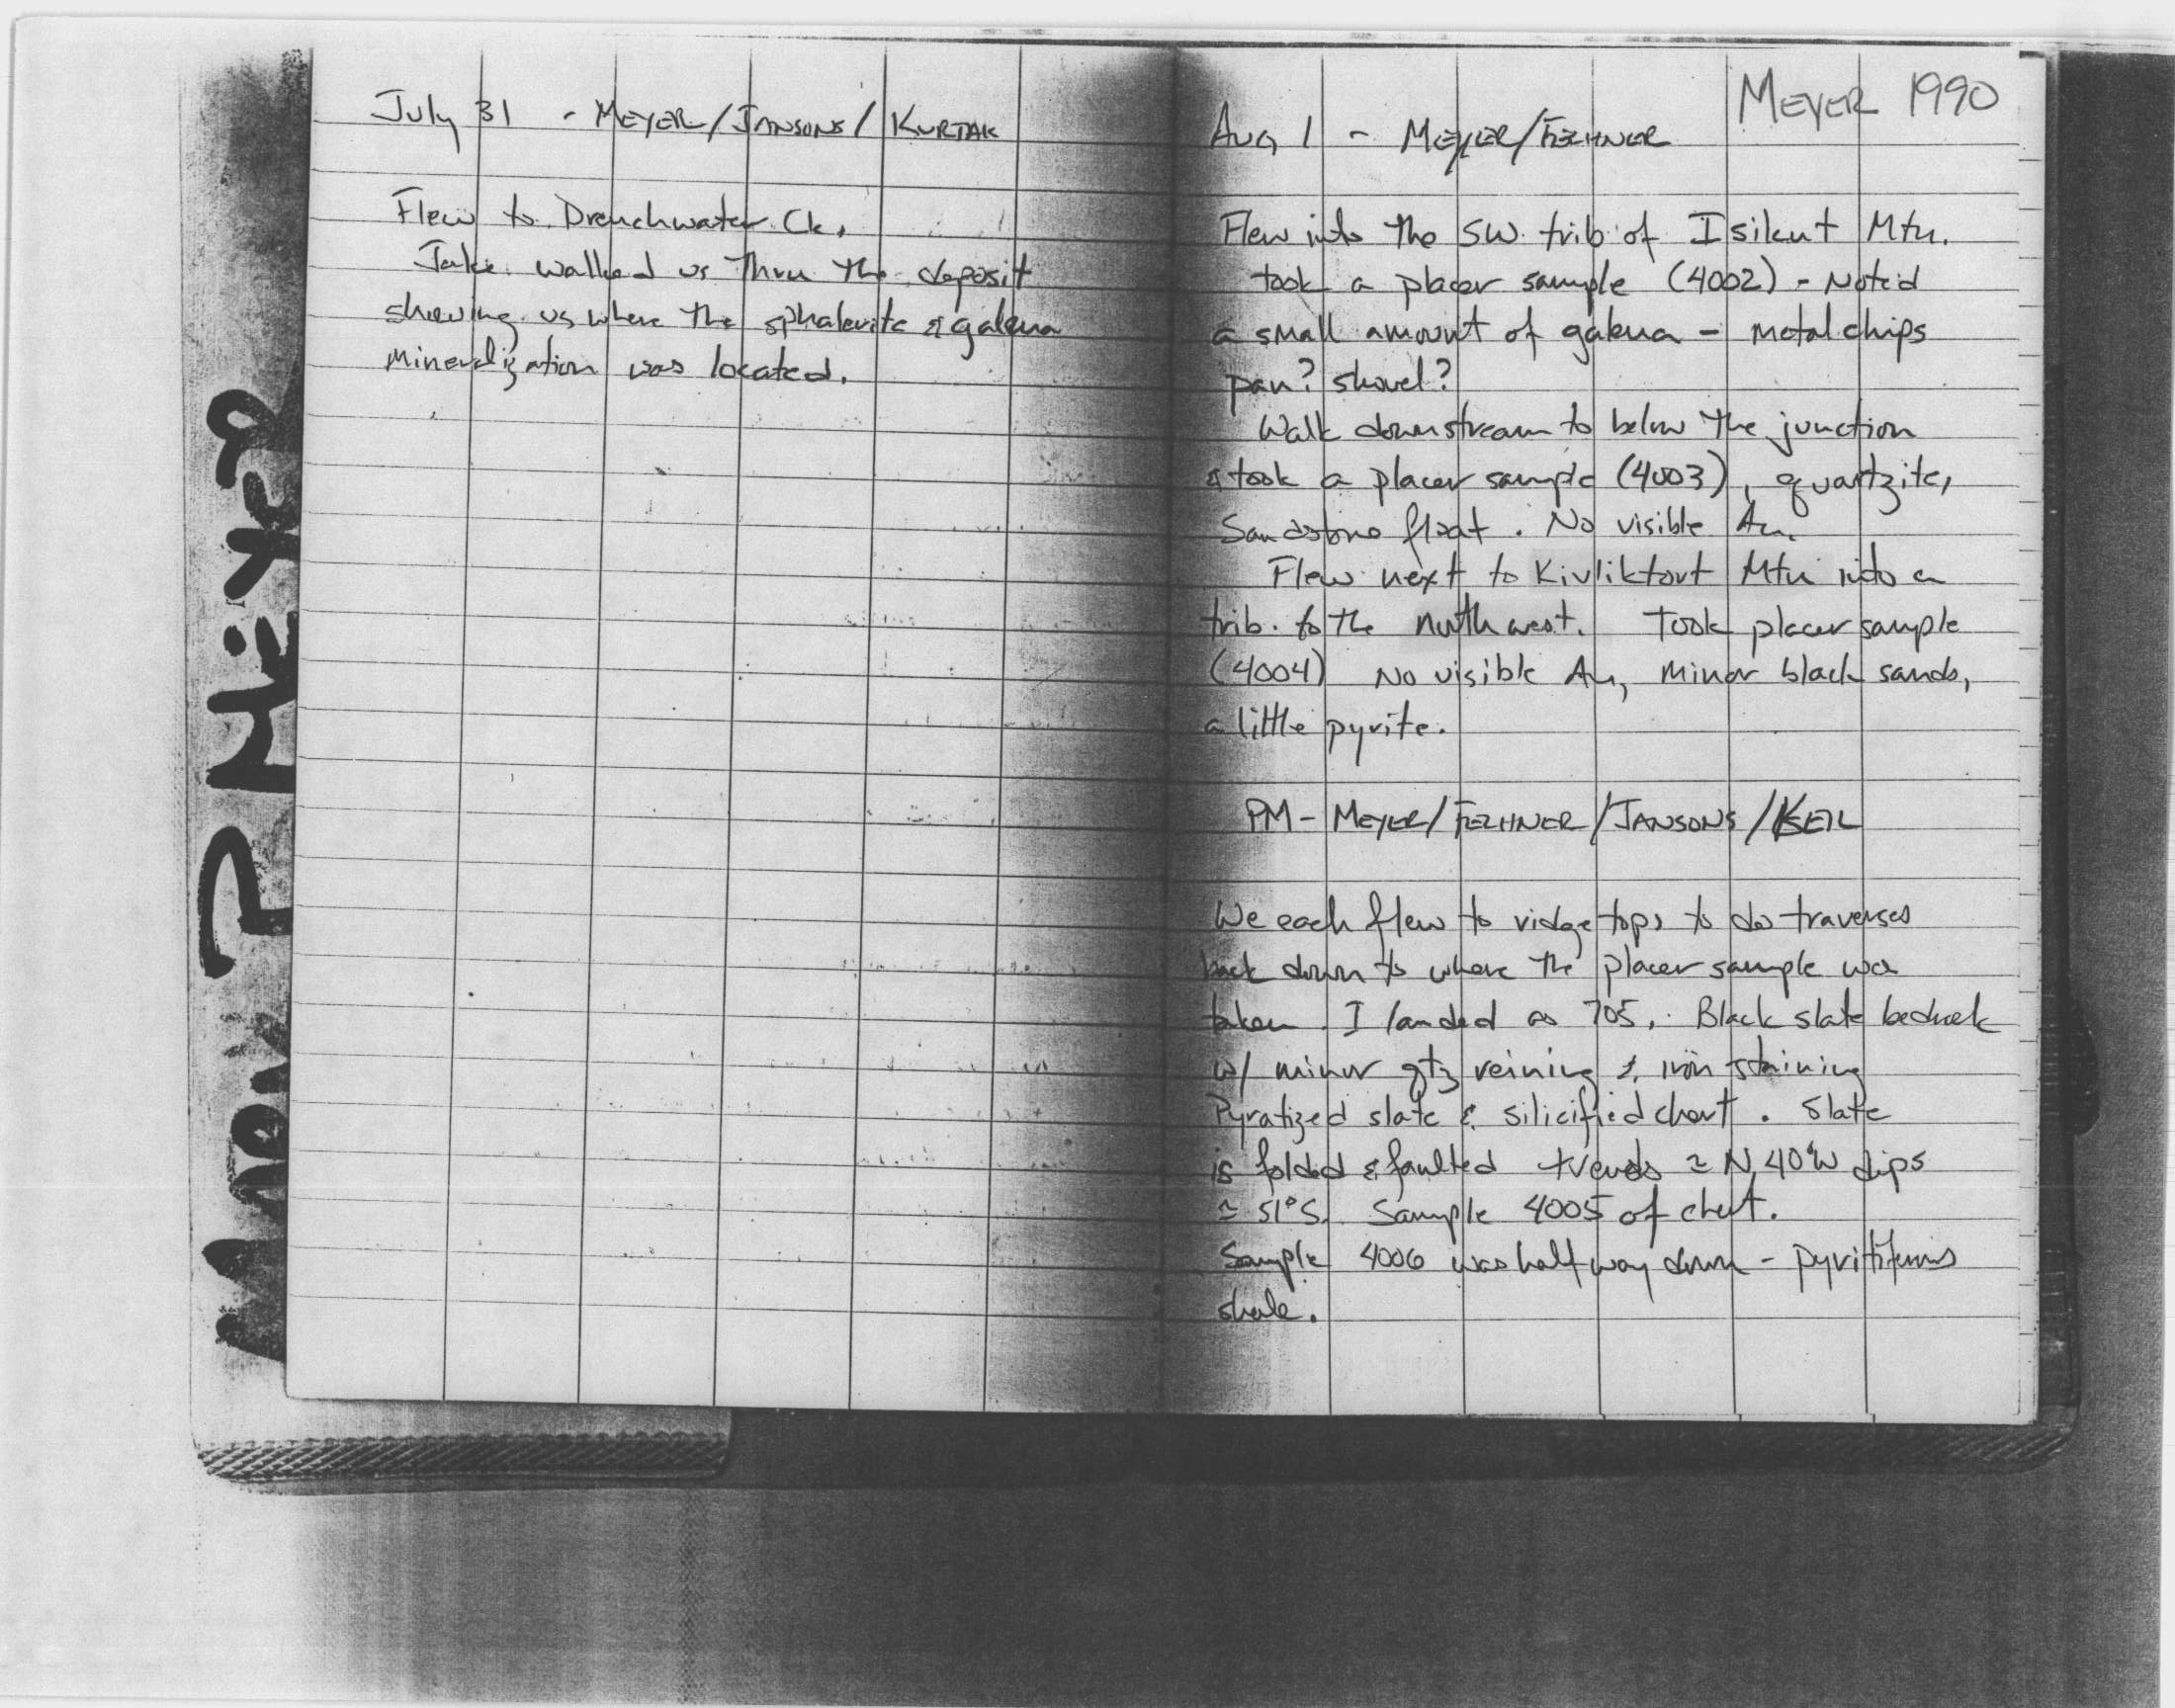 July 31 - MEYER/JANSONS/KURTAK
Flew to Drenchwater Ck.
Jake walked us thru the deposit
showing us where the sphalerite & galena
mineralization was located.
MEYER 1990
AUG 1 - MEYER/FECHNER
Flew into the SW trib of Isikut Mtn.
took a placer sample (4002) - Noted
a small amount of galena - metal chips
pan? shovel?
Walk downstream to below the junction
& took a placer sample (4003), quartzite,
Sandstone float. No visible Au.
Flew next to Kivliktort Mtn into a
trib. to the northwest. Took placer sample
(4004) No visible Au, minor black sands,
a little pyrite.
PM - MEYER/FECHNER/JANSONS/KEIL
We each flew to ridge tops to do traverses
back down to where the placer sample was
taken. I landed as 705. Black slate bedrock
w/ minor qtz veining & iron staining
Pyratized slate & silicified chert. Slate
is folded & faulted trends ≈ N 40°W dips
≈ 51°S. Sample 4005 of chert.
Sample 4006 was half way down - pyritiferous
shale.